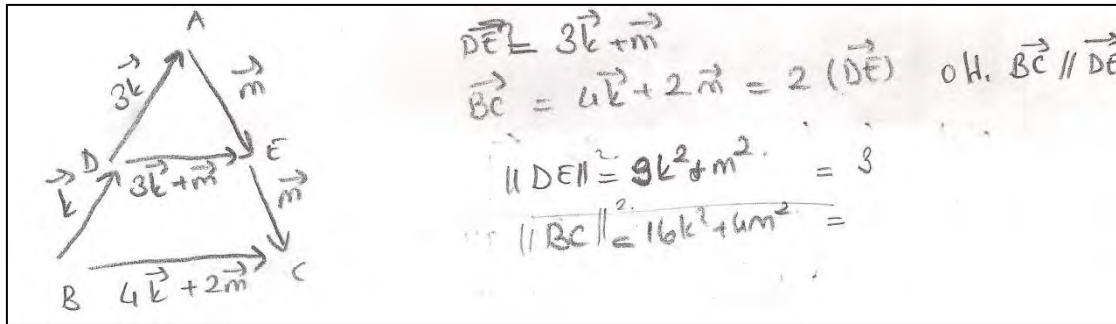 A
3k⃗ m⃗
D E
k⃗ 3k⃗+m⃗ m⃗
B 4k⃗+2m⃗ C
DE⃗ = 3k⃗+m⃗
BC⃗ = 4k⃗+2m⃗ = 2 (DE⃗) BC⃗ // DE⃗
||DE||² = 9k²+m² = 3
||BC||² = 16k²+4m² =